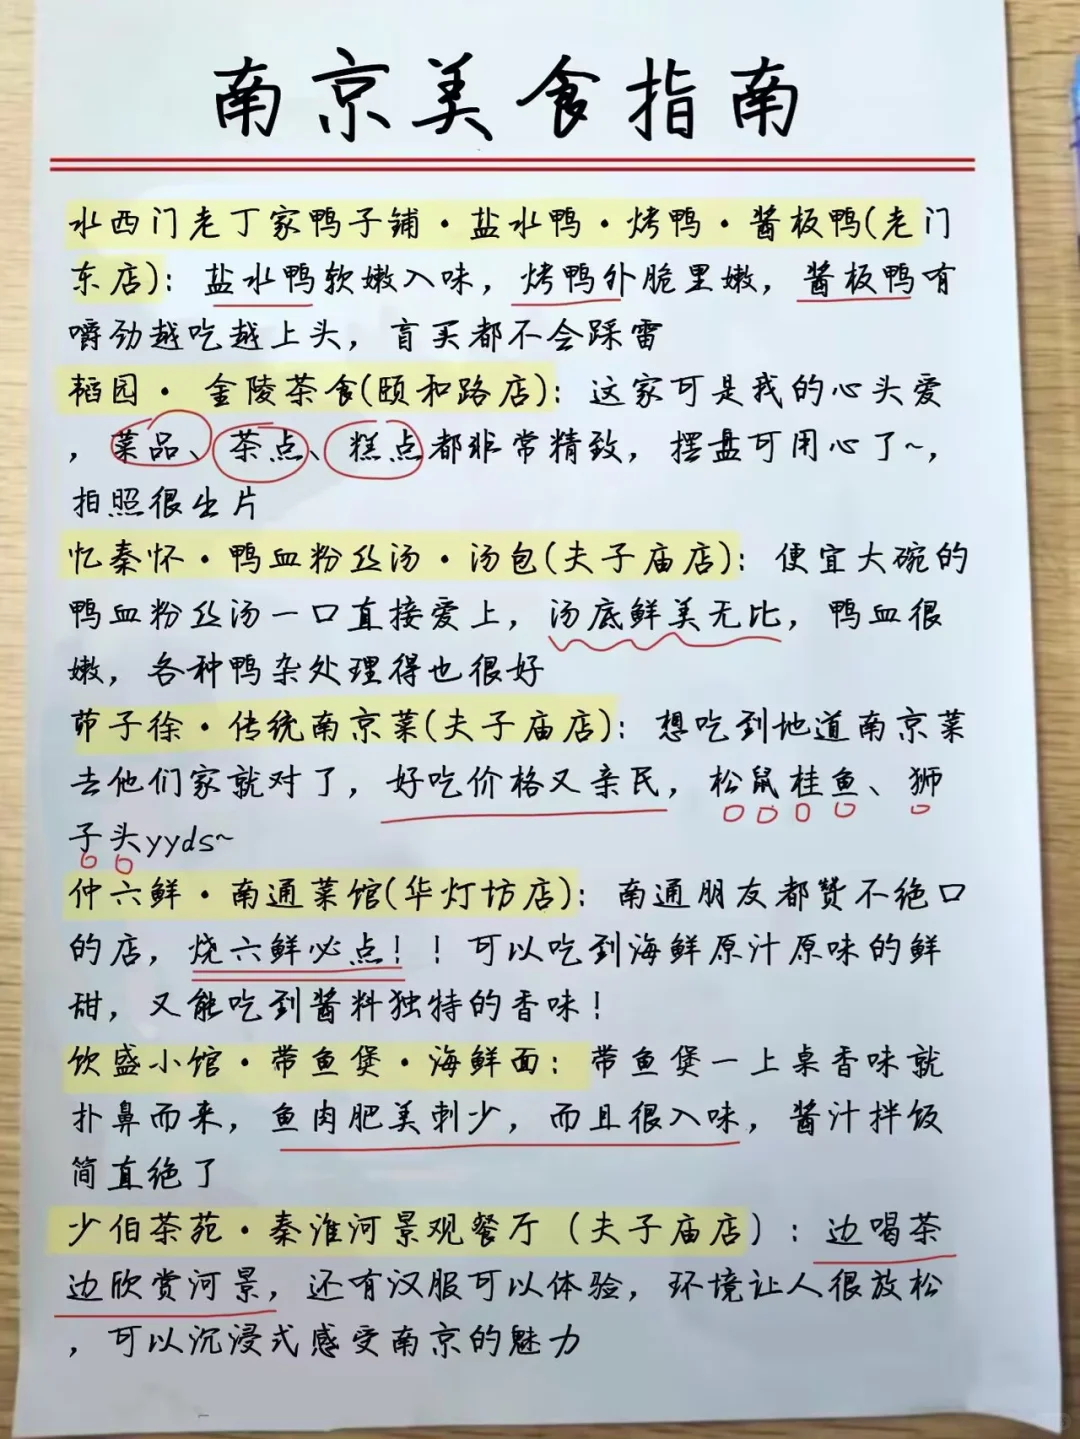 南京美食指南
水西门老丁家鸭子铺·盐水鸭·烤鸭·酱板鸭(老门
东店)：盐水鸭软嫩入味，烤鸭外脆里嫩，酱板鸭有
嚼劲越吃越上头，盲买都不会踩雷
韬园· 金陵茶食(颐和路店)：这家可是我的心头爱
，菜品、茶点、糕点都非常精致，摆盘可用心了~，
拍照很出片
忆秦怀·鸭血粉丝汤·汤包(夫子庙店)：便宜大碗的
鸭血粉丝汤一口直接爱上，汤底鲜美无比，鸭血很
嫩，各种鸭杂处理得也很好
茆子徐·传统南京菜(夫子庙店)：想吃到地道南京菜
去他们家就对了，好吃价格又亲民，松鼠桂鱼、狮
子头yyds~
仲六鲜·南通菜馆(华灯坊店)：南通朋友都赞不绝口
的店，烧六鲜必点！！可以吃到海鲜原汁原味的鲜
甜，又能吃到酱料独特的香味！
饮盛小馆·带鱼煲·海鲜面：带鱼煲一上桌香味就
扑鼻而来，鱼肉肥美刺少，而且很入味，酱汁拌饭
简直绝了
少伯茶苑·秦淮河景观餐厅（夫子庙店）：边喝茶
边欣赏河景，还有汉服可以体验，环境让人很放松
，可以沉浸式感受南京的魅力